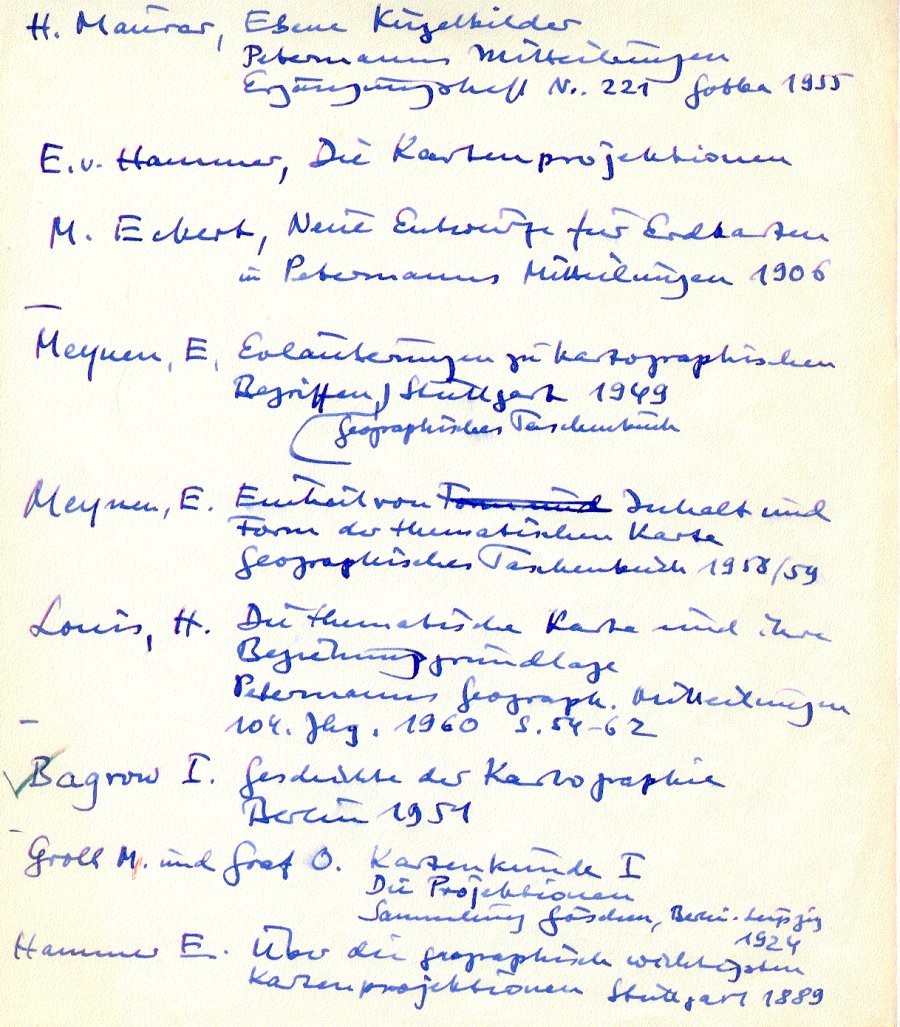 H. Maurer, Ebene Kugelbilder
Petermanns Mitteilungen
Ergänzungsheft Nr. 221 Gotha 1935
E. v. Hammer, Die Kartenprojektionen
M. Eckert, Neue Entwürfe für Erdkarten
in Petermanns Mitteilungen 1906
Meynen, E, Erläuterungen zu kartographischen
Begriffen, Stuttgart 1949
(Geographisches Taschenbuch
Meynen, E. Einheit von Form und Inhalt und
Form der thematischen Karte
Geographisches Taschenbuch 1958/59
Louis, H. Die thematische Karte und ihre
Beziehungsgrundlage
Petermanns Geograph. Mitteilungen
104. Jhg. 1960 S. 54-62
Bagrow I. Geschichte der Kartographie
Berlin 1951
Groll M. und Graf O. Kartenkunde I
Die Projektionen
Sammlung Göschen, Berlin-Leipzig
1924
Hammer E. Über die geographisch wichtigsten
Kartenprojektionen Stuttgart 1889